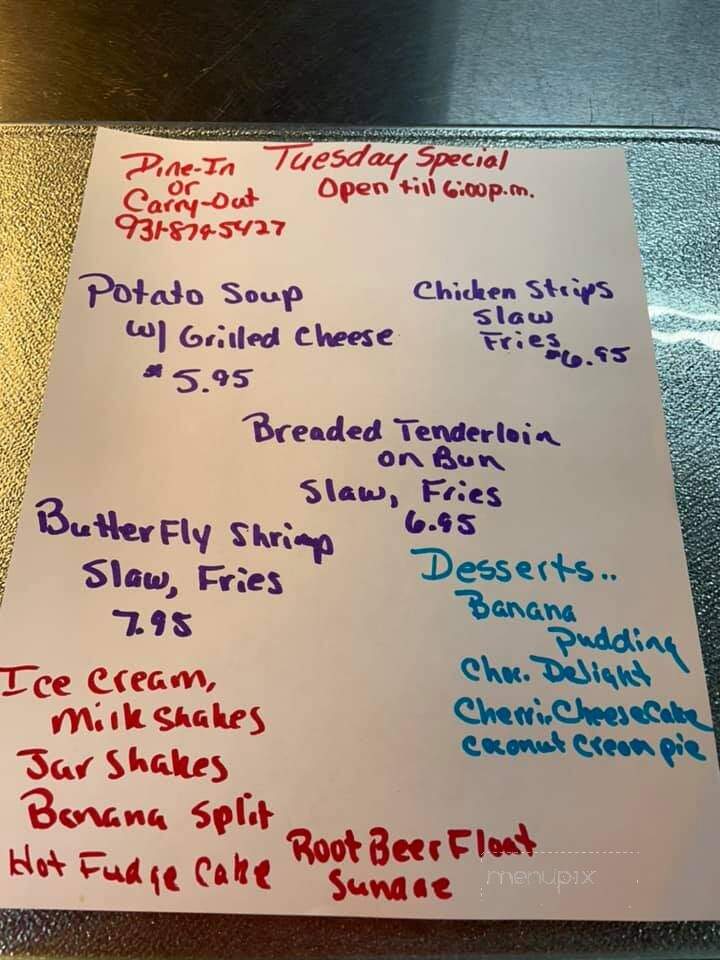 Dine-In
or
Carry-Out
931-874-5427
Tuesday Special
Open till 6:00p.m.
Potato Soup
w/ Grilled Cheese
$5.95
Chicken Strips
Slaw
Fries $6.95
Breaded Tenderloin
on Bun
Slaw, Fries
6.95
ButterFly Shrimp
Slaw, Fries
7.95
Desserts..
Banana
Pudding
Choc. Delight
Cherri. CheeseCake
coconut Cream pie
Ice Cream,
Milk Shakes
Jar Shakes
Banana Split
Hot Fudge Cake
Root Beer Float
Sundae
menupix